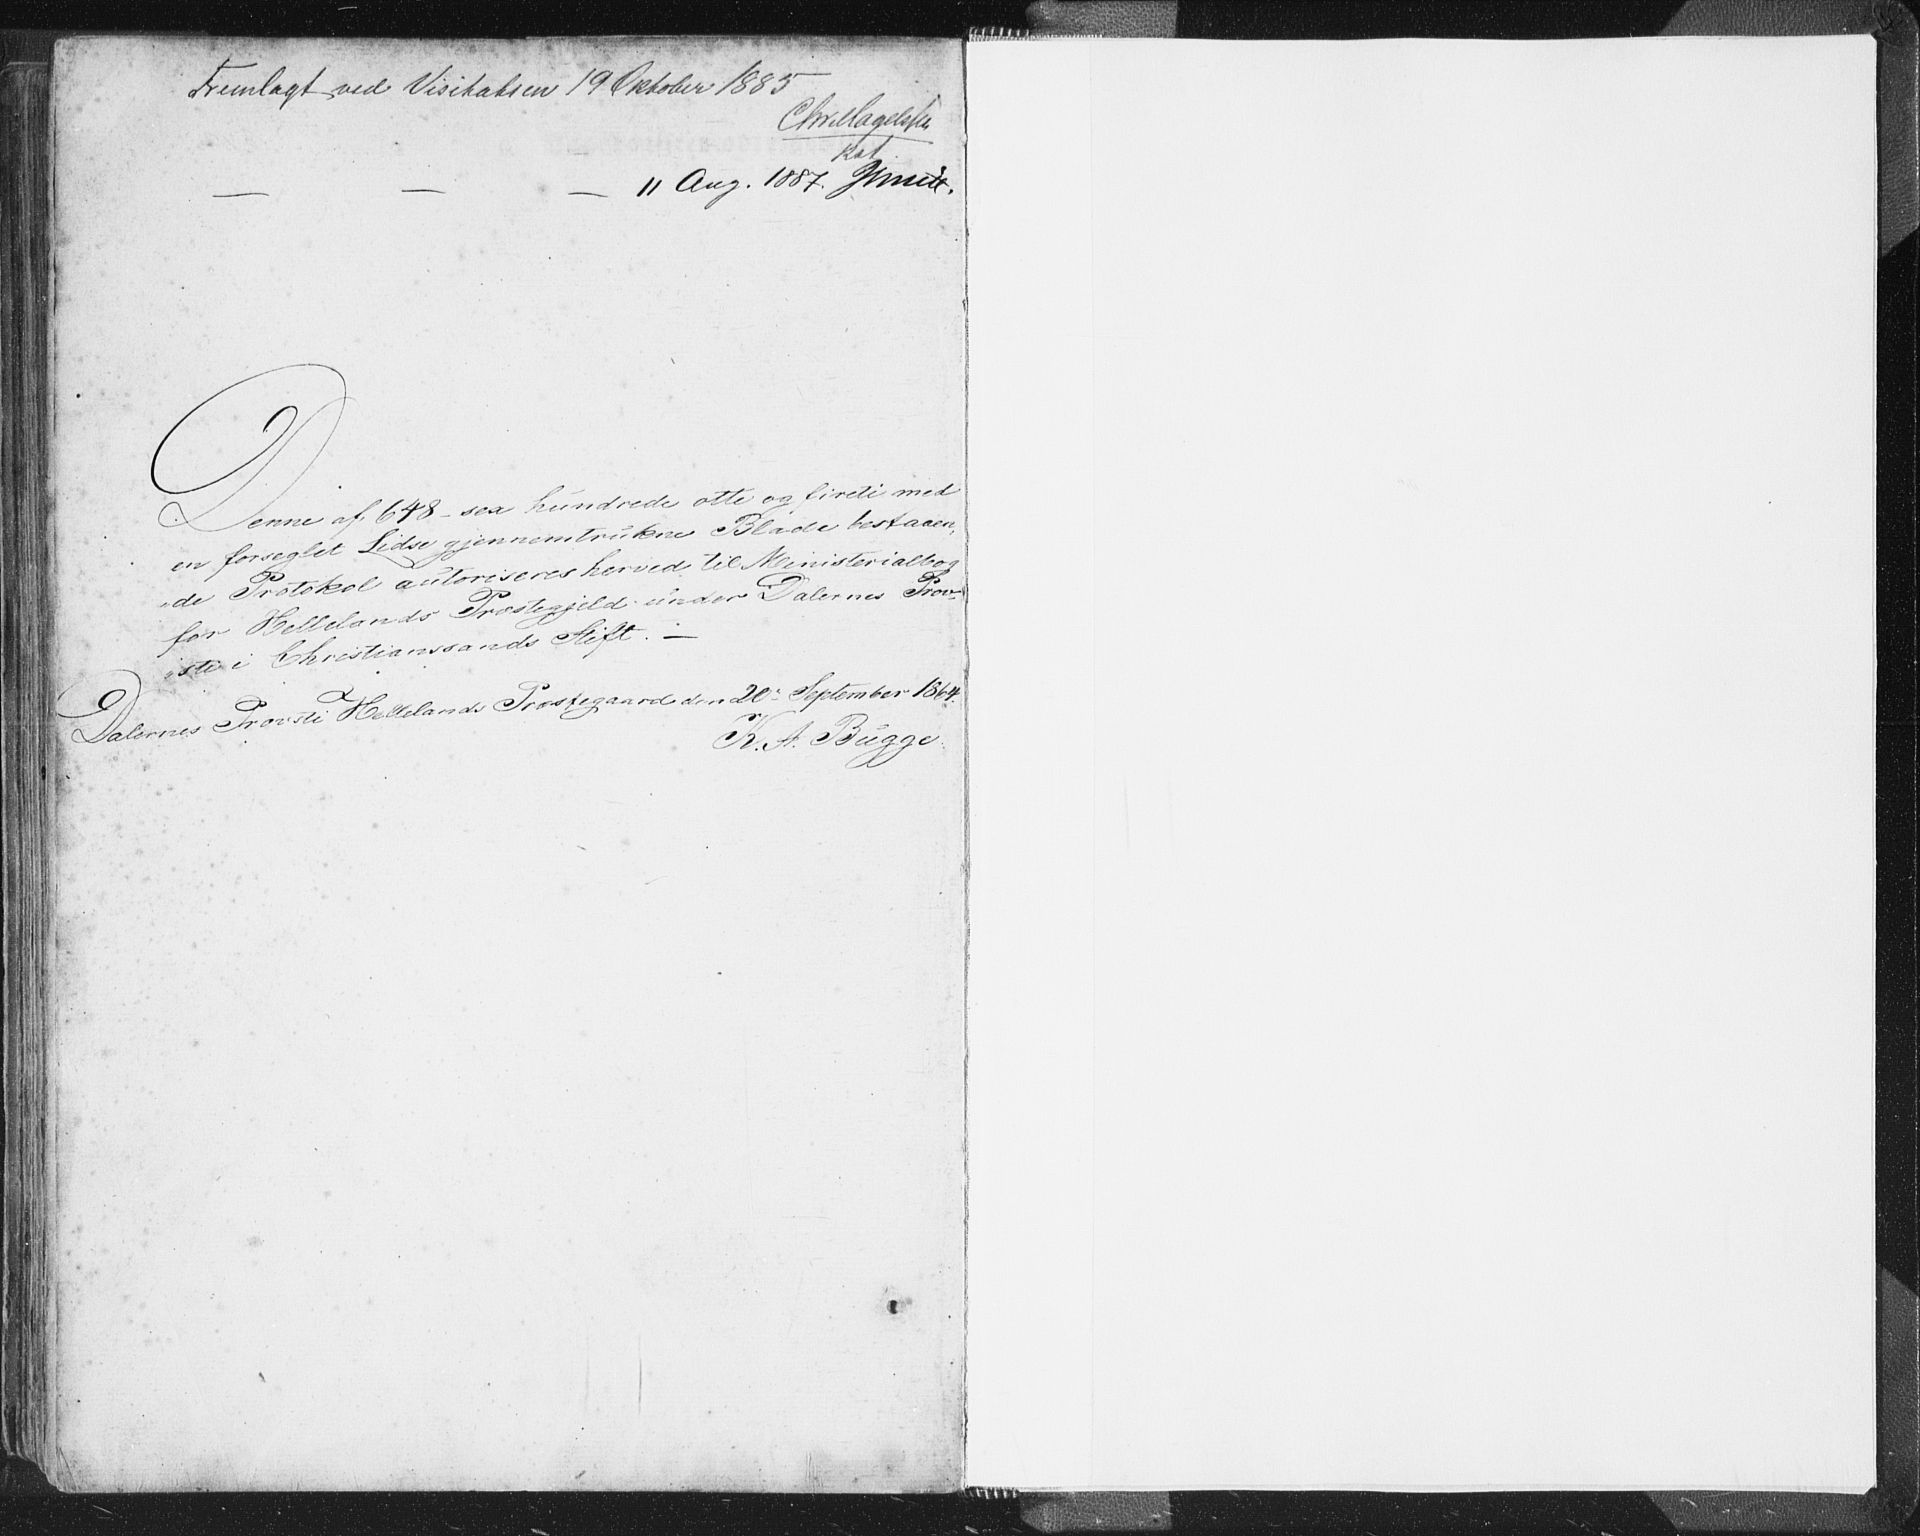 Fremlagt ved Visitatsen 19 Oktober 1885
Kst.
— — — 11 Aug. 1887.
Denne af 648 - sex hundrede otte og fireti med
en forseglet Lidse gjennemtrukne Blade bestaaen,
,de Protokol autoriseres herved til Ministerialbog
for Hellelands Præstegjeld under Dalernes Prov,
,sti i Christianssands Stift. —
Dalernes Provsti Hellelands Præstegaard den 20. September 1864.
K. A. Bugge.